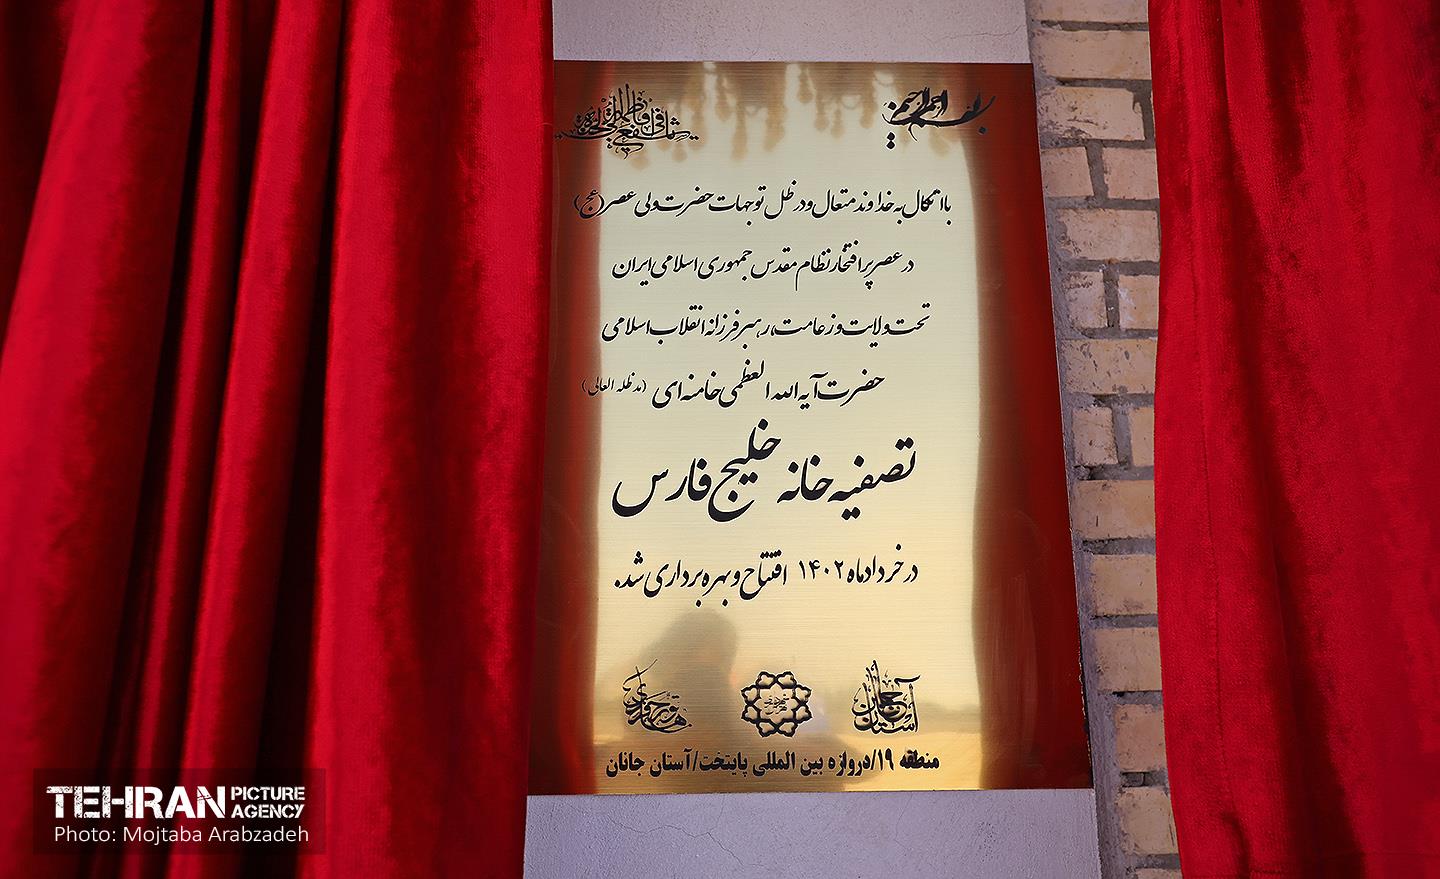 بسم الله الرحمن الرحیم
با اتکال به خداوند متعال و در ظل توجهات حضرت ولی عصر (عج)
در عصر پر افتخار نظام مقدس جمهوری اسلامی ایران
تحت ولایت و زعامت، رهبر فرزانه انقلاب اسلامی
حضرت آیه الله العظمی خامنه ای (مد ظله العالی)
تصفیه خانه خلیج فارس
در خرداد ماه ۱۴۰۲ افتتاح و بهره برداری شد.
منطقه ۱۹/دروازه بین المللی پایتخت/آستان جانان
TEHRAN PICTURE AGENCY
Photo: Mojtaba Arabzadeh